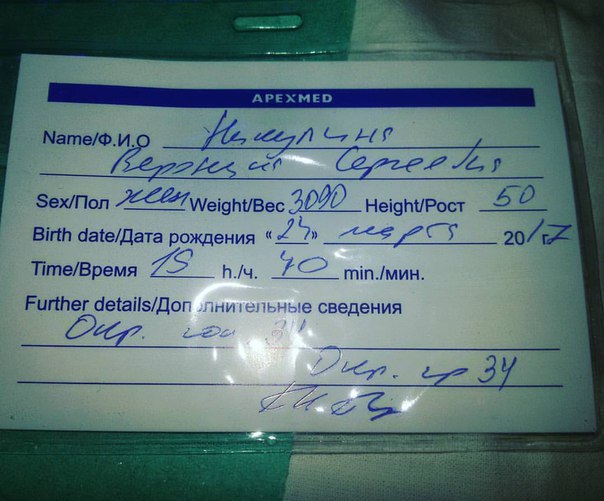 APEXMED
Name/Ф.И.О Никулина
Сергеевна
Sex/Пол жен Weight/Вес 3090 Height/Рост 50
Birth date/Дата рождения «24» марта 2017
Time/Время 19 h./ч. 40 min./мин.
Further details/Дополнительные сведения
Окр. гол 34
Окр. гр 34